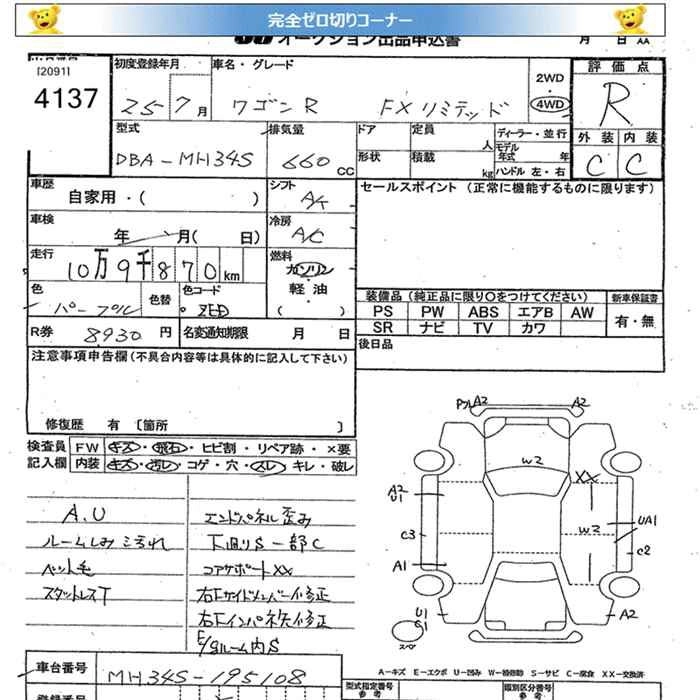 完全ゼロ切りコーナー
オークション出品申込書 月 日 AA
[2091]
4137
初度登録年月 25 7 月
車名・グレード ワゴンR FXリミテッド
2WD
4WD
評価点 R
型式 DBA-MH34S
排気量 660 CC
ドア 定員 人
形状 積載 kg
ディーラー・並行
モデル年式 年
ハンドル 左・右
外装 内装
C C
車歴 自家用・( )
シフト A4
セールスポイント (正常に機能するものに限ります)
車検 年 月( 日)
冷房 A/C
走行 10万9千870 km
燃料 ガソリン
軽油
( )
色 パープル 色替 色コード ZED
装備品(純正品に限り〇をつけてください) 新車保証書
PS PW ABS エアB AW 有・無
SR ナビ TV カワ
R券 8930 円 名変通知期限 月 日
後日品
注意事項申告欄(不具合内容等は具体的に記入して下さい)
修復歴 有 [箇所 ]
検査員 FW キズ・飛石・ヒビ割・リペア跡・×要
記入欄 内装 キズ・汚レ・コゲ・穴・スレ・キレ・破レ
A.U
ルームしみこげれ
ペット毛
スタットレスT
エンドパネル歪み
下廻りS一部C
コアサポートXX
右Fサイドメンバー修正
右Fインパネ先修正
E/gルーム内S
アルA2 A2
W2
XX
A2
U1
UA1
W2
C3
C2
A1
U1
G1
A2
スペア
A-キズ E-エクボ U-凹み W-補修跡 S-サビ C-腐食 XX-交換済
車台番号 MH34S-195108
登録番号
型式指定番号
参考
類別区分番号
参考